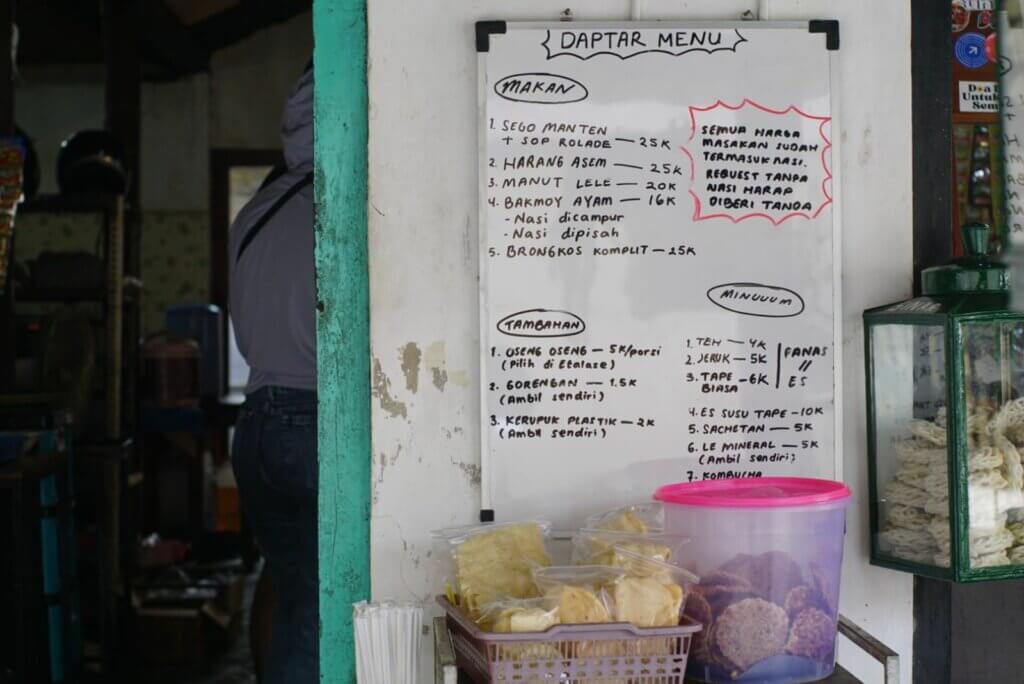 DAPTAR MENU
MAKAN
1. SEGO MANTEN
+ SOP ROLADE — 25K
2. HARANG ASEM — 25K
3. MANUT LELE — 20K
4. BAKMOY AYAM — 16K
- Nasi dicampur
- Nasi dipisah
5. BRONGKOS KOMPLIT — 25K
SEMUA HARGA
MASAKAN SUDAH
TERMASUK NASI.
REQUEST TANPA
NASI HARAP
DIBERI TANDA
TAMBAHAN
1. OSENG OSENG — 5K/porsi
(Pilih di Etalase)
2. GORENGAN — 1.5K
(Ambil sendiri)
3. KERUPUK PLASTIK — 2K
(Ambil sendiri)
MINUUUM
1. TEH — 4K
2. JERUK — 5K
3. TAPE — 6K
BIASA
PANAS
//
ES
4. ES SUSU TAPE — 10K
5. SACHETAN — 5K
6. LE MINERAL — 5K
(Ambil sendiri)
7. KOMBUCHA
Doa
Untuk
Sem